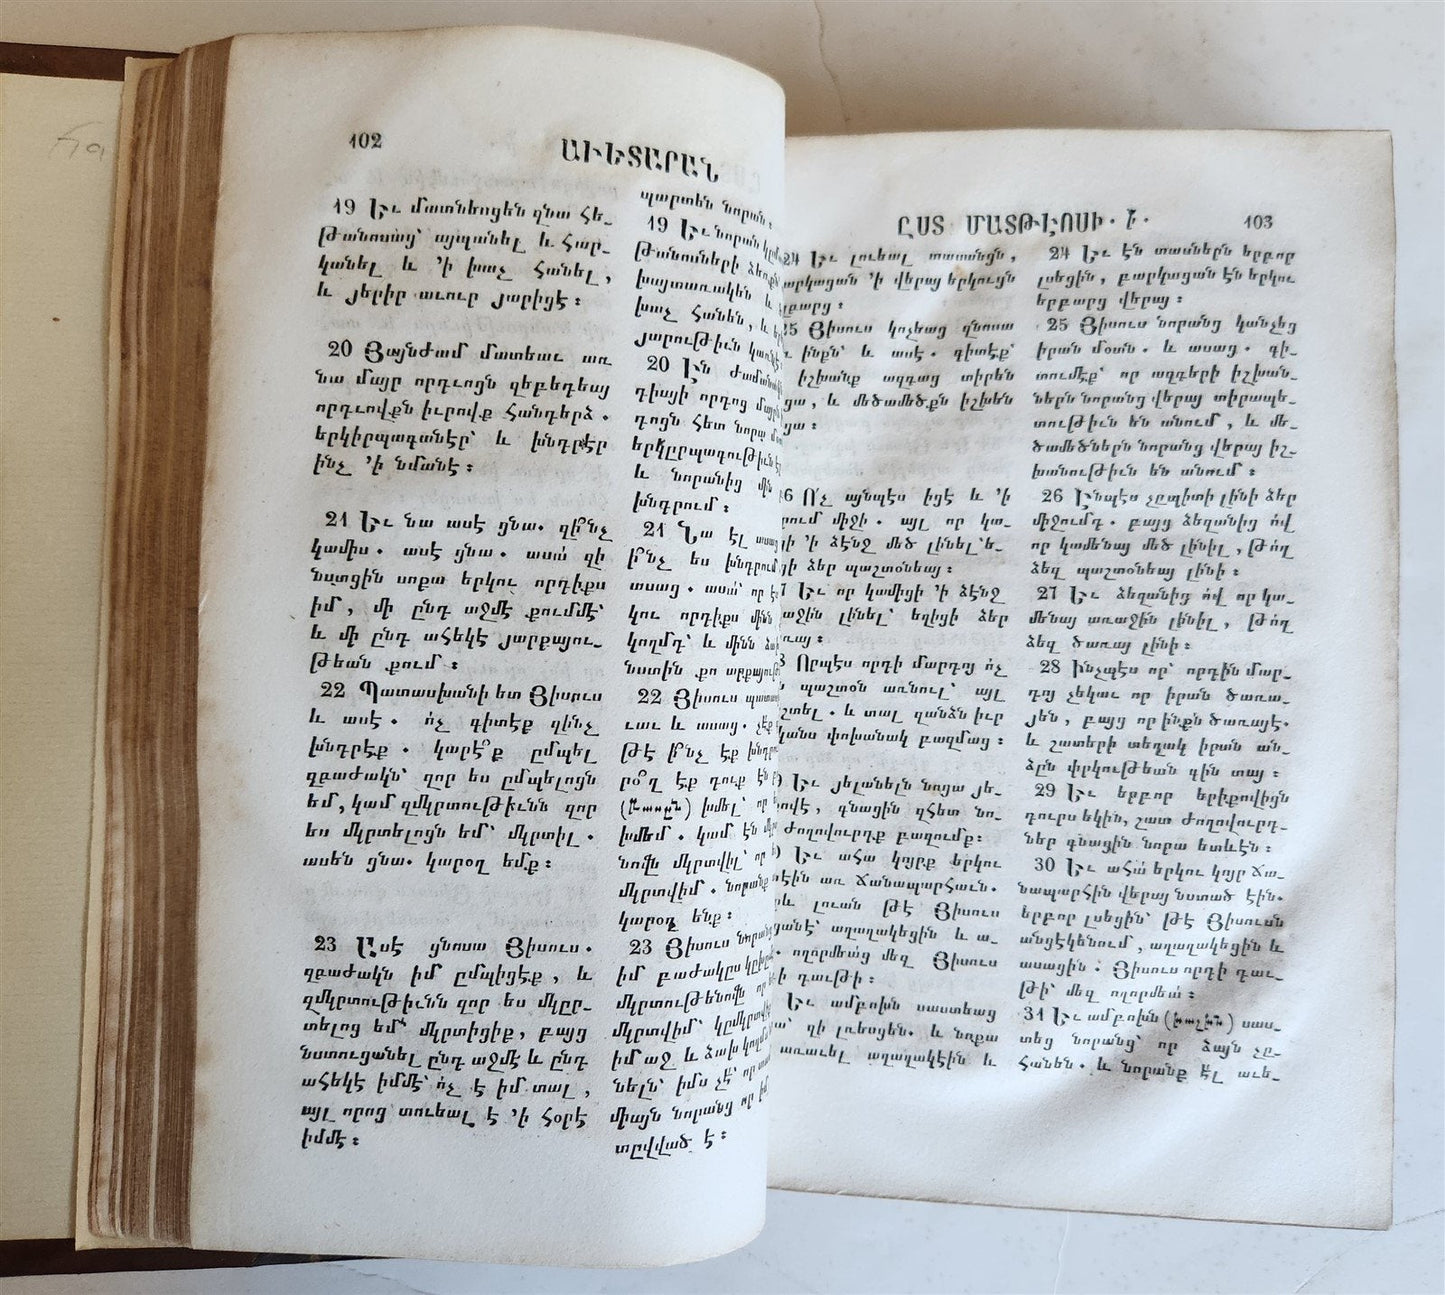 102
ԱՒԵՏԱՐԱՆ
19 Եւ մատնեսցեն զնա հե-
թանոսաց՝ այպանել և հար-
կանել և ՚ի խաչ հանել,
և յերիր աւուր յարիցէ։
20 Յայնժամ մատեաւ առ
նա մայր որդւոցն զեբեդեայ
որդւովքն իւրովք հանդերձ.
երկիրպագանէր՝ և խնդրէր
ինչ ՚ի նմանէ։
21 Եւ նա ասէ ցնա. զի՞նչ
կամիս. ասէ ցնա. ասա՛ զի
նստցին սոքա երկու որդիքս
իմ, մի ընդ աջմէ քումմէ՝
և մի ընդ ահեկէ յարքայու-
թեան քում։
22 Պատասխանի ետ Յիսուս
և ասէ. ո՛չ գիտէք զինչ
խնդրէք. կարէ՞ք ըմպել
զբաժակն՝ զոր ես ըմպելոցն
եմ, կամ զմկրտութիւնն զոր
ես մկրտելոցն եմ՝ մկրտիլ.
ասեն ցնա. կարօղ եմք։
23 Ասէ ցնոսա Յիսուս.
զբաժակն իմ ըմպիցէք, և
զմկրտութիւնն զոր ես մկըր-
տելոց եմ՝ մկրտիցիք, բայց
նստուցանել ընդ աջմէ և ընդ
ահեկէ իմմէ՝ ո՛չ է իմ տալ,
այլ որոց տուեալ է ՚ի հօրէ
իմմէ։
պարտեն նորան։
19 Եւ նորան
թանոսների
խայտառակեն և
խաչ հանեն, և
յարութիւն
20 Էն
դիայի որդոց
դոցն հետ նորա
երկըրպագութիւն
և նորանից մին
խնդրում։
21 Նա էլ ասաց
ի՞նչ ես խնդրում
ասաց. ասա՛ որ
կու որդիքս մինն
կողմդ՝ և մինն
նստին քո
22 Յիսուս
ւաւ և ասաց. չէք
թէ ի՞նչ էք
րօ՞ղ էք դուք էն
խմել՝ որ
խմեմ. կամ էն
նովն մկրտվիլ՝ որ
մկրտվիմ. նորանք
կարօղ ենք։
23 Յիսուս նորանց
իմ բաժակըս
մկրտութենովն որ
մկրտվիմ՝
իմ աջ և ձախ
նելն՝ իմս չէ՝ որ
միայն նորանց որ
տըվված է։
ԸՍՏ ՄԱՏԹԷՈՍԻ. Ի.
103
24 Եւ լուեալ տասանցն,
բարկացան ՚ի վերայ երկուցն
25 Յիսուս կոչեաց զնոսա
ինքն՝ և ասէ. գիտէք՝
իշխանք ազգաց տիրեն
և մեծամեծքն իշխեն
26 Ո՛չ այնպէս իցէ և ՚ի
միջի. այլ որ կա-
՚ի ձէնջ մեծ լինել՝ ե-
ձեր պաշտօնեայ։
Եւ որ կամիցի ՚ի ձէնջ
լինել՝ եղիցի ձեր
Որպէս որդի մարդոյ ո՛չ
պաշտօն առնուլ՝ այլ
և տալ զանձն իւր
փոխանակ բազմաց։
Եւ յելանելն նոցա յե-
գնացին զհետ նո-
ժողովուրդք բազումք։
Եւ ահա կոյրք երկու
առ ճանապարհաւն.
լուան թէ Յիսուս
աղաղակեցին և ա-
ողորմեա՛ց մեզ Յիսուս
դաւթի։
Եւ ամբոխն սաստեաց
զի լռեսցեն. և նոքա
առաւել աղաղակէին և
24 Եւ էն տասներն երբոր
լսեցին, բարկացան էն երկու
երբարց վերայ։
25 Յիսուս նորանց կանչեց
իրան մօտն. և ասաց. գի-
տումէք՝ որ ազգերի իշխան-
ներն նորանց վերայ տիրապե-
տութիւն են անում, և մե-
ծամեծներն նորանց վերայ իշ-
խանութիւն են անում։
26 Էնպէս չըպիտի լինի ձեր
միջումդ. բայց ձեզանից ո՛վ
որ կամենայ մեծ լինիլ, թող
ձեզ պաշտօնեայ լինի։
27 Եւ ձեզանից ո՛վ որ կա-
մենայ առաջին լինիլ, թող
ձեզ ծառայ լինի։
28 Ինչպէս որ՝ որդին մար-
դոյ չեկաւ որ իրան ծառա-
յեն, բայց որ ինքն ծառայէ.
և շատերի տեղակ իրան ան-
ձըն փրկութեան գին տայ։
29 Եւ երբոր երիքովիցն
դուրս եկին, շատ ժողովուրդ-
ներ գնացին նորա ետևէն։
30 Եւ ահա՛ երկու կոյր ճա-
նապարհին վերայ նստած էին.
երբոր լսեցին՝ թէ Յիսուսն
անցէկենում, աղաղակեցին և
ասացին. Յիսուս որդի դաւ-
թի՝ մեզ ողորմեա՛։
31 Եւ ամբոխն (խալխն) սաս-
տեց նորանց՝ որ ձայն չը-
հանեն. և նորանք էլ աւե-